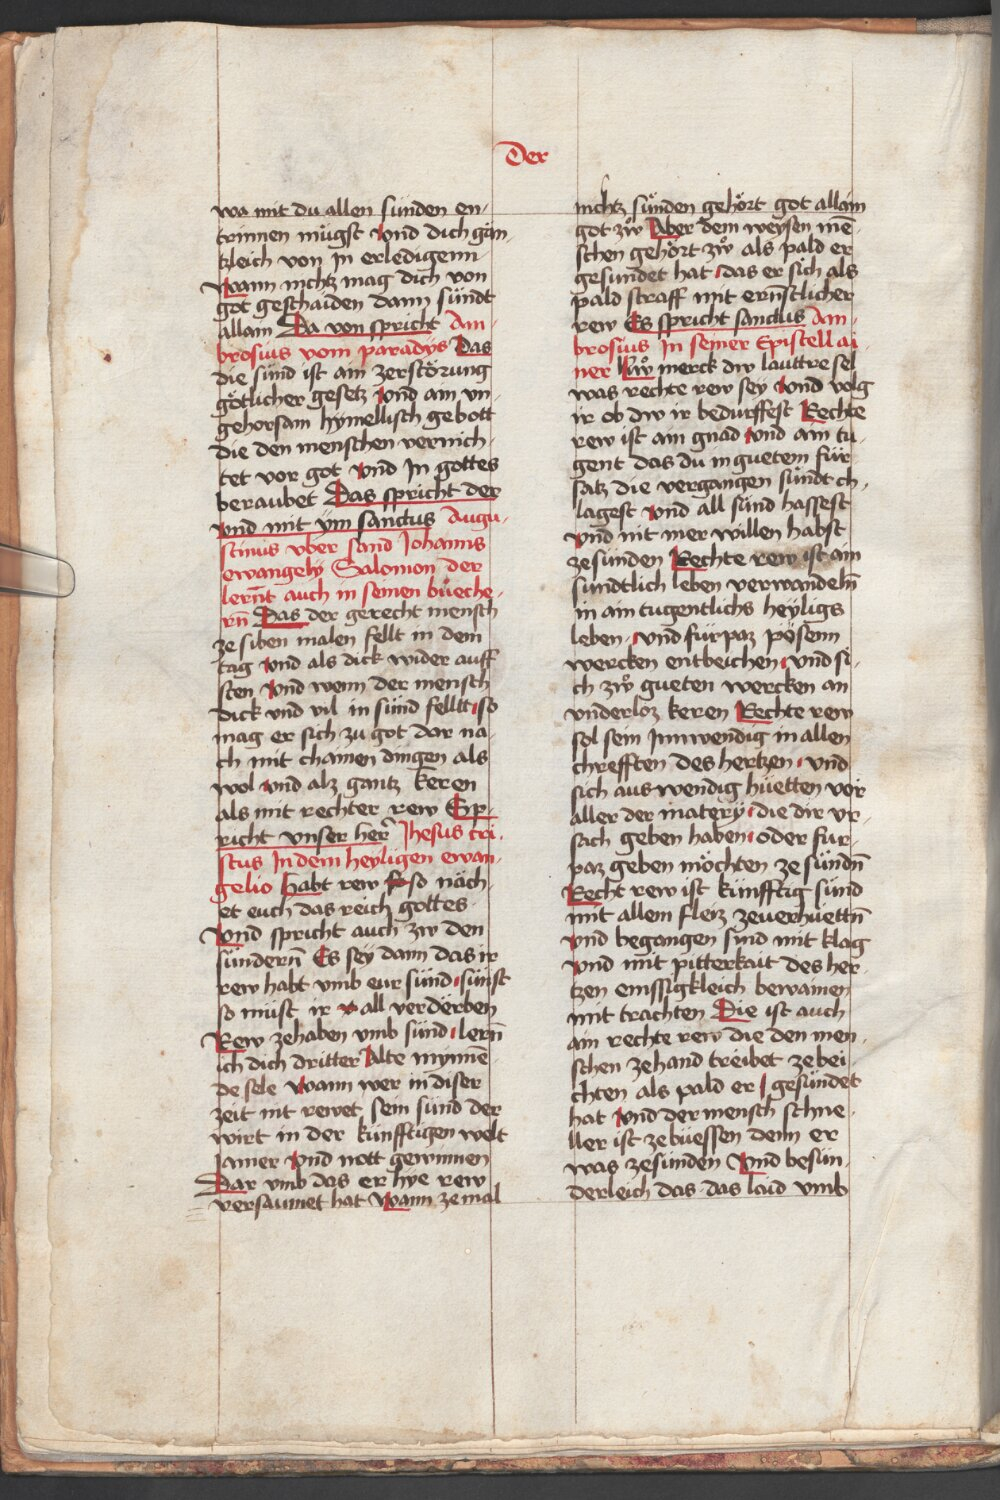 Der
wa mit du allen sünden en-
trinnen mügst vnd dich gän-
tzleich von jn erledigenn
wann nichtz mag dich von
got geschaiden dann sündt
allain Da von spricht Am-
brosius vom paradÿs Das
die sünd ist ain zerstörung
götlicher gesetz vnd ain vn-
gehorsam hymellisch gebott
die den menschen vernich-
tet vor got vnd Jn gottes
beraubet Das spricht der
vnd mit ÿm sanctus Augu-
stinus vber sand Johanns
ewangely Salomon der
lernt auch in seinen büeche-
rn Das der gerecht mensch
ze siben malen fellt in dem
tag vnd als dick wider auff
sten vnd wenn der mensch
dick vnd vil in sünd fellt so
mag er sich zu got dar na-
ch mit chainen dingen als
wol vnd alz gantz keren
als mit rechter rew Esp-
richt vnser her Jhesus cri-
stus In dem heyligen ewan-
gelio habt rew so näch-
et euch das reich gottes
Vnd spricht auch zw den
sündern Es sey dann das ir
rew habt vmb eur sünd sünst
so müst ir all verderben
Rew zehaben vmb sünd lern
ich dich dritter Alte mynnē-
de sele Wann wer in diser
zeit nit rewet sein sünd der
wirt in der künfftigen welt
Jamer vnd nott gewinnen
Dar vmb das er hye rew
versaumet hat Wann ze mal
nichtz sünden gehört got allain
got zw Aber dem weysen mē-
schen gehört zw als pald er
gesundet hat das er sich als
pald straff mit ernstlicher
rew Es spricht sanctus Am-
brosius Jn seiner Epistell ai-
ner Nw merck dw lauttre sel
was rechte rew sey vnd volg
ir ob dw ir bedurffest Rechte
rew ist ain gnad vnd ain tu-
gent das du in guetem für-
satz die vergangen sündt ch-
lagest vnd all sünd hassest
vnd nit mer willen habst
ze sünden Rechte rew ist ain
sündtlich leben verwandeln
in ain tugentlichs heyligs
leben vnd fürpaz pösenn
wercken entbeichen vnd si-
ch zw gueten wercken an
vnderloz keren Rechte rew
sol sein Innwendig in allen
chrefften des hertzen vnd
sich auswendig hüetten vor
aller der matery die dir vr-
sach geben haben oder fur-
paz geben möchten ze sündn
Recht rew ist künfftig sünd
mit allem fleiz zeuerhuettn
vnd begangen sünd mit klag
vnd mit pitterkait des her-
tzen emssigkleich bewainen
mit trachten Die ist auch
ain rechte rew die den men-
schen zehand treibet ze bei-
chten als pald er gesündet
hat vnd der mensch schne-
ller ist ze büessen denn er
was zesunden Vnd besün-
derleich das das laid vmb